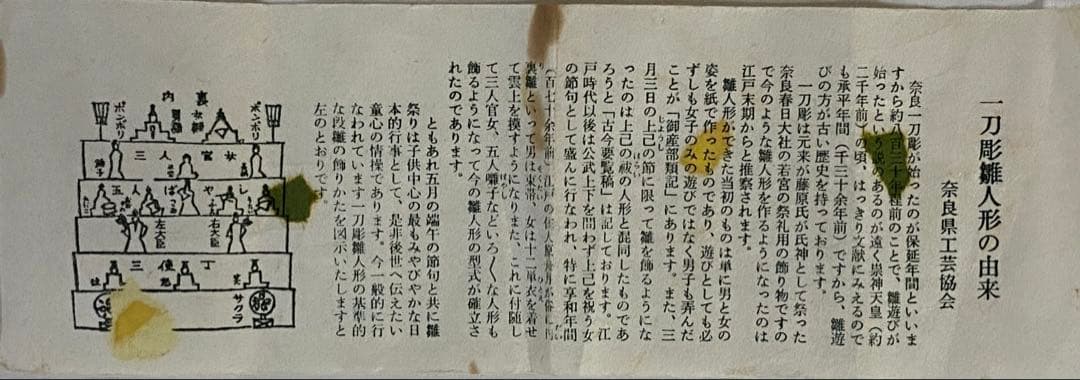 一刀彫雛人形の由来
奈良県工芸協会
奈良一刀彫が始ったのが保延年間といいま
すから約八百三十年程前のことで、雛遊びが
始ったという説のあるのが遠く崇神天皇(約
二千年前)の頃、はっきり文献にみえるので
も承平年間(千三十余年前)ですから、雛遊
びの方が古い歴史を持っております。
一刀彫は元来が藤原氏が氏神として祭った
奈良春日大社の若宮の祭礼用の飾り物ですの
で今のような雛人形を作るようになったのは
江戸末期からと推察されます。
雛人形ができた当初のものは単に男と女の
姿を紙で作ったものであり、遊びとしても必
ずしも女子のみの遊びではなく男子も弄んだ
ことが「御産部類記」にあります。また、三
月三日の上巳の節に限って雛を飾るようにな
ったのは上巳の祓の人形と混同したものであ
ろうと「古今要覧稿」は記しております。江
戸時代以後は公武上下を問わず上巳を祝う女
の節句として盛んに行なわれ、特に享和年間
(百七十余年前)江戸の
奥雛といって男は束帯、女は十二単衣を着せ
て雲上を摸すようになりまた、これに付随し
て三人官女、五人囃子などいろ〱な人形も
飾るようになって今の雛人形の型式が確立さ
れたのであります。
ともあれ五月の端午の節句と共に雛
祭りは子供中心の最もみやびやかな日
本的行事として、是非後世へ伝えたい
童心の情操であります。今一般的に行
なわれています一刀彫雛人形の基準的
な段雛の飾りかたを図示いたしますと
左のとおりです。
内裏
ボンボリ
男雛
女雛
ボンボリ
三人官女
五人ばやし
左大臣
右大臣
三使丁
サクラ